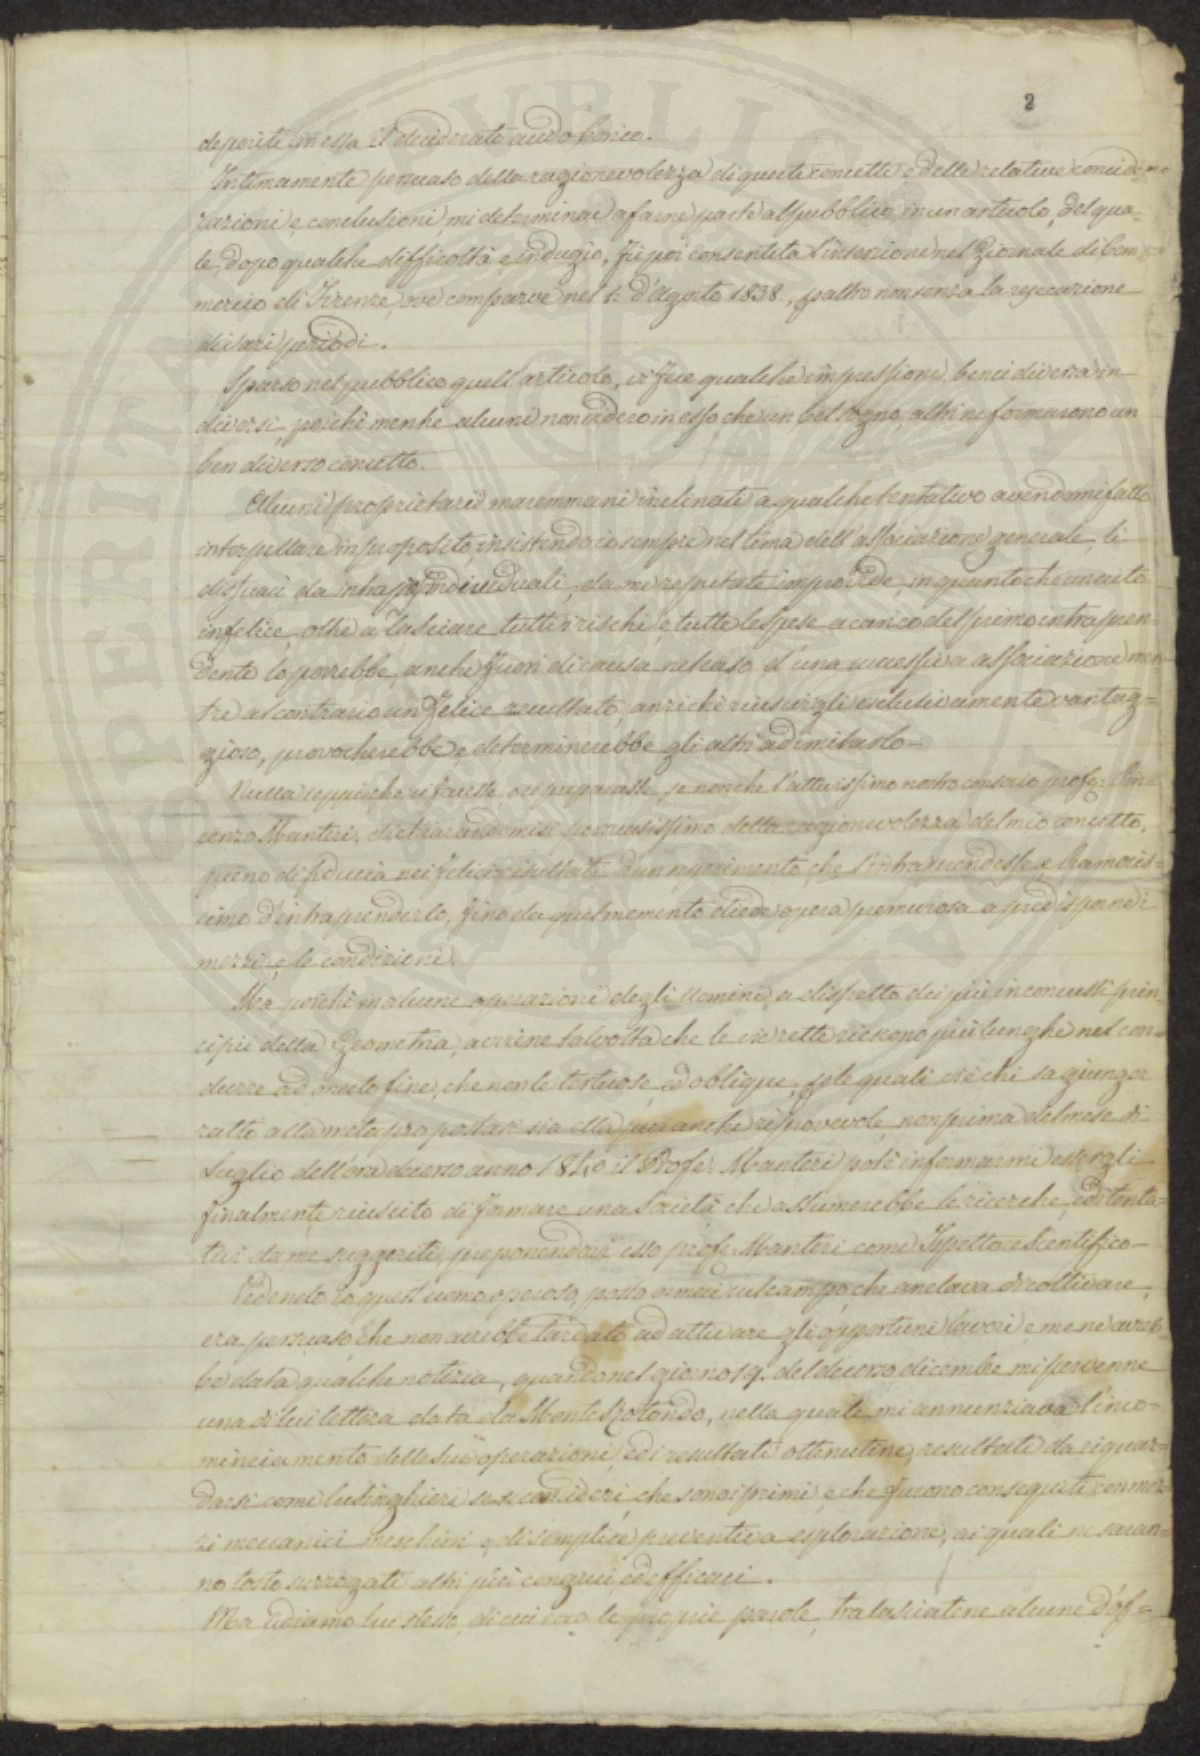 2
deposita in essa il desiderato acido borico.
Intimamente persuaso della ragionevolezza di questi concetti e delle relative conside-
razioni, e conclusioni, mi determinai a farne parte al pubblico in un articolo, del qua-
le, dopo qualche difficoltà e indugio, fu poi consentita l'inserzione nel Giornale di Com-
mercio di Firenze, ove comparve nel 1.° d'Agosto 1838., peraltro non senza la resecazione
di vari periodi.
Sparso nel pubblico quell'articolo, vi fece qualche impressione, bensì diversa in
diversi, poichè mentre alcuni non videro in esso che un bel sogno, altri ne formarono un
ben diverso concetto.
Alcuni proprietarj maremmani inclinati a qualche tentativo avendomi fatto
interpellare in proposito, insistendo io sempre nel tema dell'associazione generale, li
dissuasi da intraprese individuali, da me reputate improvide, in quanto che un esito
infelice, oltre a lasciare tutti i rischi, e tutte le spese a carico del primo intrapren-
dente lo porrebbe anche fuori di causa nel caso d'una successiva associazione, men-
tre al contrario un felice resultato, anzichè riuscirgli esclusivamente vantag-
gioso, provocherebbe, e determinerebbe gli altri ad imitarlo.
Nulla seppi che si facesse, o si preparasse, se non che l'attivissimo nostro consocio profes. Vin-
cenzo Manteri, dichiarandomisi persuasissimo della ragionevolezza del mio concetto,
pieno di fiducia nei felici resultati d'un esperimento, che s'intraprendesse, e bramosis-
simo d'intraprenderlo, fino da quel momento diede opera premurosa a predisporne i
mezzi, e le condizioni.
Ma poichè in alcune operazioni degli uomini, a dispetto dei più inconcussi prin-
cipii della Geometria, avviene talvolta che le vie rette riescono più lunghe nel con-
durre ad onesto fine, che non le tortuose, ed oblique, per le quali vi è chi sa giunger
ratto alla meta propostasi sia ella pur anche riprovevole, non prima del mese di
Luglio dell'ora decorso anno 1840 il Profes. Manteri potè informarmi essergli
finalmente riuscito di formare una Società che assumerebbe le ricerche, ed i tenta-
tivi da me suggeriti, preponendovi esso profes. Manteri come Ispettore Scientifico
Vedendo io quest'uomo operoso, posto ormai sul campo che anelava di coltivare,
era persuaso che non avrebbe tardato ad attivare gli opportuni lavori e me ne avreb-
be data qualche notizia, quando nel giorno 19. del decorso dicembre mi pervenne
una di lui lettera data da Monte Rotondo, nella quale mi annunziava l'inco-
minciamento delle sue operazioni, ed i resultati ottenutine, resultati da riguar-
darsi come lusinghieri se si consideri, che sono i primi, e che furono conseguiti con mez-
zi meccanici meschini e di semplice preventiva esplorazione, ai quali ne saran-
no tosto surrogati altri più congrui ed efficaci.
Ma udiamo lui stesso, di cui ecco le proprie parole, tralasciatene alcune d'of-